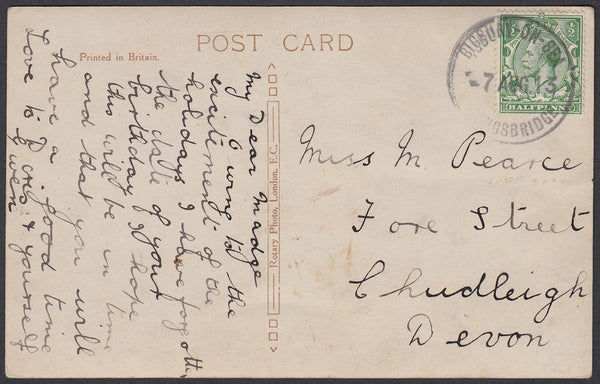 POST CARD
Printed in Britain.
My Dear Madge
Owing to the
excitement of the
holidays I have forgotten
the date of your
birthday I hope
this will be in time
and that you will
have a good time
Love to Doris & yourself
Gwen
Rotary Photo, London, E.C.
BIGBURY-ON-SEA
7 AUG 13
KINGSBRIDGE
HALFPENNY
Miss M. Pearce
Fore Street
Chudleigh
Devon